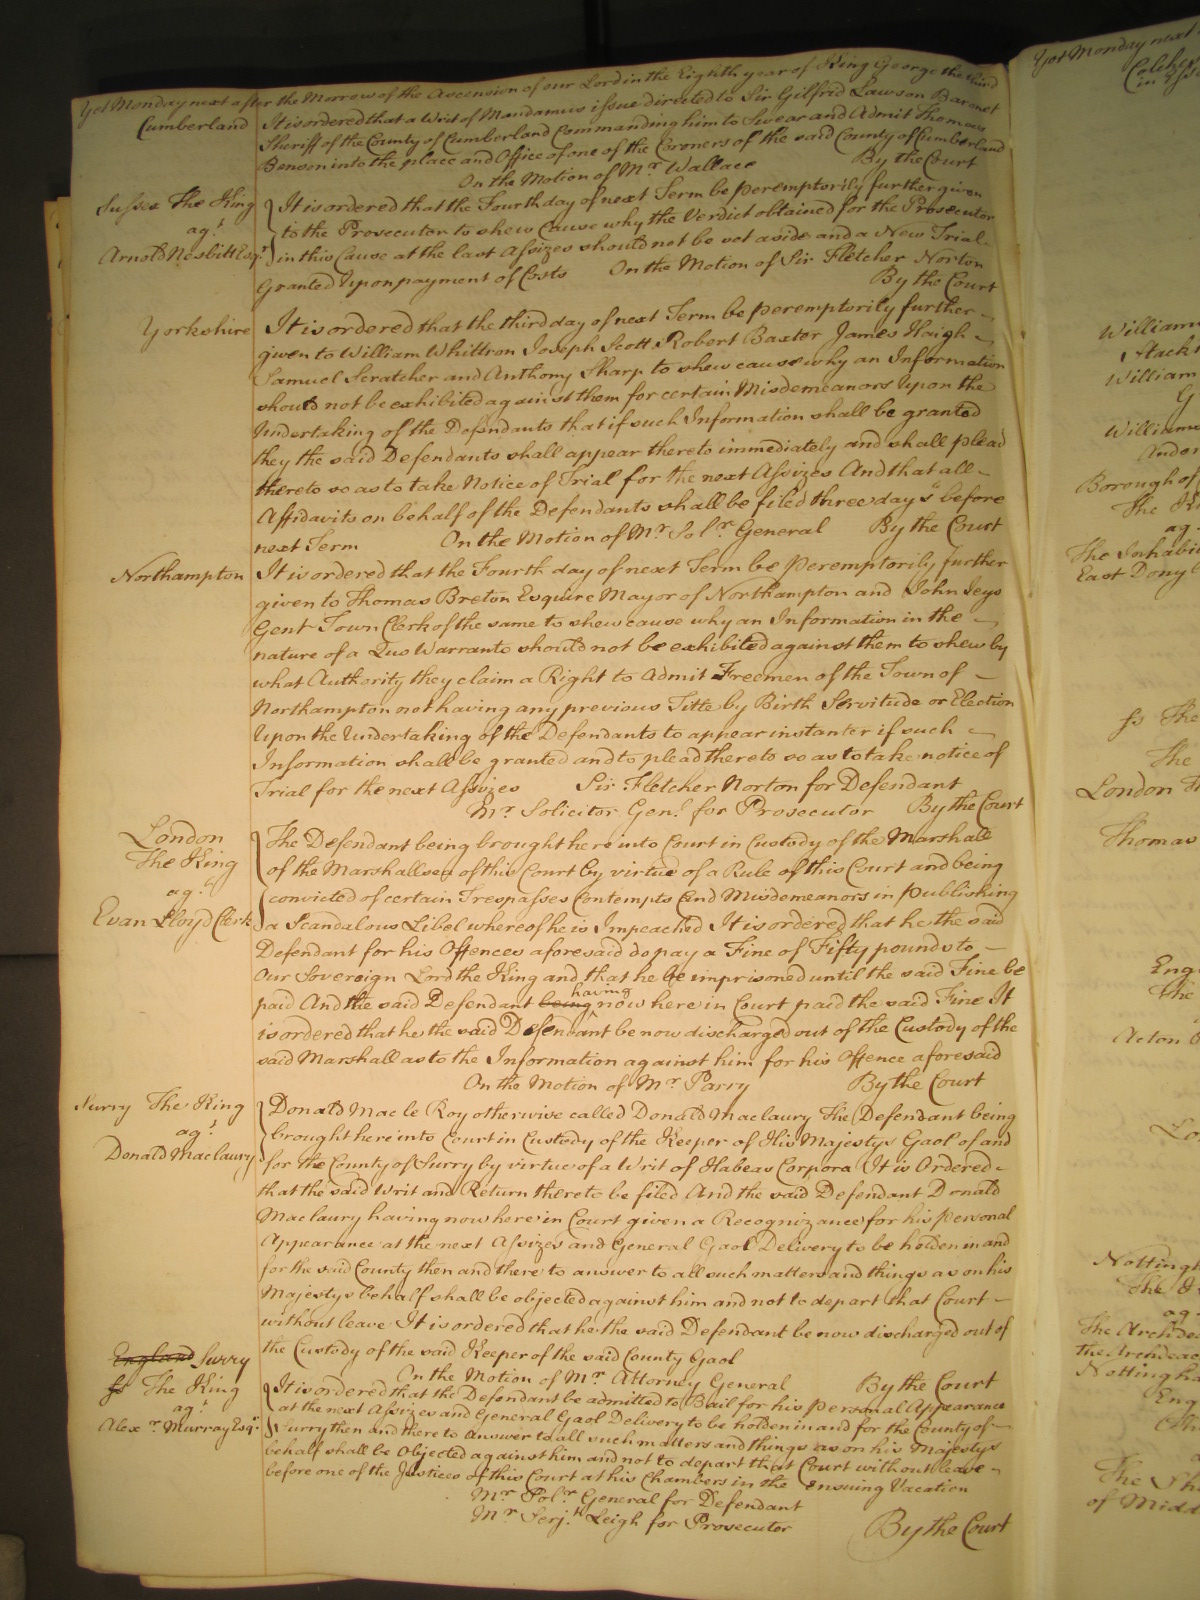 Yet Monday next after the Morrow of the Ascension of our Lord in the Eighth year of King George the third
Cumberland It is ordered that a Writ of Mandamus issue directed to Sir Gilfrid Lawson Baronet
Sheriff of the County of Cumberland Commanding him to Swear and Admit Thomas
Benson into the place and Office of one of the Coroners of the said County of Cumberland
On the Motion of Mr Wallace By the Court
Sussex The King It is ordered that the Fourth day of next Term be peremptorily further given
agt to the Prosecutor to shew Cause why the Verdict obtained for the Prosecutor
Arnold Nesbitt Esqr in this Cause at the last Assizes should not be set aside and a New Trial
Granted Upon payment of Costs On the Motion of Sir Fletcher Norton
By the Court
Yorkshire It is ordered that the third day of next Term be peremptorily further
given to William Whittron Joseph Scott Robert Baxter James Haigh
Samuel Scratcher and Anthony Sharp to shew cause why an Information
should not be exhibited against them for certain Misdemeanors Upon the
Undertaking of the Defendants that if such Information shall be granted
they the said Defendants shall appear thereto immediately and shall plead
thereto so as to take Notice of Trial for the next Assizes And that all
Affidavits on behalf of the Defendants shall be filed three days before
next Term On the Motion of Mr Solr General By the Court
Northampton It is ordered that the Fourth day of next Term be peremptorily further
given to Thomas Breton Esquire Mayor of Northampton and John Jeys
Gent Town Clerk of the same to shew cause why an Information in the
nature of a Quo Warranto should not be exhibited against them to shew by
what Authority they claim a Right to Admit Freemen of the Town of
Northampton not having any previous Title by Birth Servitude or Election
Upon the Undertaking of the Defendants to appear instanter if such
Information shall be granted and to plead thereto so as to take notice of
Trial for the next Assizes Sir Fletcher Norton for Defendant
Mr Solicitor Genl for Prosecutor By the Court
London The Defendant being brought here into Court in Custody of the Marshall
The King of the Marshallsea of this Court by virtue of a Rule of this Court and being
agt convicted of certain Trespasses Contempts and Misdemeanors in publishing
Evan Lloyd Clerk a Scandalous Libel whereof he is Impeached It is ordered that he the said
Defendant for his Offences aforesaid do pay a Fine of Fifty pounds to
Our Sovereign Lord the King and that he be imprisoned until the said Fine be
paid And the said Defendant being having now here in Court paid the said Fine It
is ordered that he the said Defendant be now discharged out of the Custody of the
said Marshall as to the Information against him for his Offence aforesaid
On the Motion of Mr Parry By the Court
Surry The King Donald Mac le Roy otherwise called Donald Maclaury The Defendant being
agt brought here into Court in Custody of the Keeper of His Majestys Gaol of and
Donald Maclaury for the County of Surry by virtue of a Writ of Habeas Corpora It is Ordered
that the said Writ and Return thereto be filed And the said Defendant Donald
Maclaury having now here in Court given a Recognizance for his personal
Appearance at the next Assizes and General Gaol Delivery to be holden in and
for the said County then and there to answer to all such matters and things as on his
Majestys behalf shall be objected against him and not to depart that Court
without leave It is ordered that he the said Defendant be now discharged out of
the Custody of the said Keeper of the said County Gaol
On the Motion of Mr Attorney General By the Court
England Surry
ss The King It is ordered that the Defendant be admitted to Bail for his personal Appearance
agt at the next Assizes and General Gaol Delivery to be holden in and for the County of
Alexr Murray Esqr Surry then and there to Answer to all such matters and things as on his Majestys
behalf shall be Objected against him and not to depart that Court without leave
before one of the Justices of this Court at his Chambers in the ensuing Vacation
Mr Solr General for Defendant
Mr Serjt Leigh for Prosecutor By the Court
Yet Monday next
William
William
William
Borough of
The
ag
The Inhabi
East Dony
ss The
The
London
Thomas
Eng
The
Acton
Lo
Nottingh
The
ag
The Archdea
the Archdeac
Nottingha
Eng
The Sh
of Midd